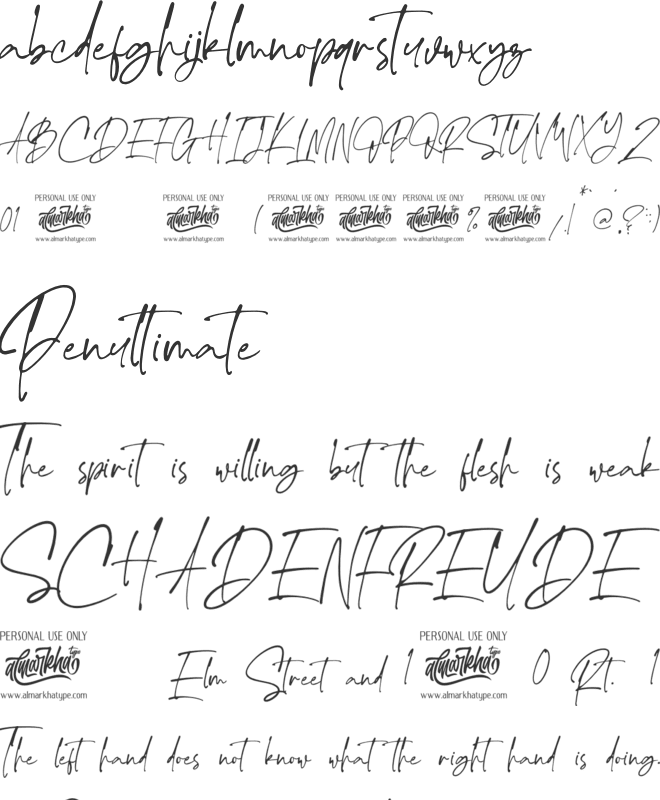 abcdefghijklmnopqrstuvwxyz
ABCDEFGHIJKLMNOPQRSTUVWXYZ
PERSONAL USE ONLY PERSONAL USE ONLY PERSONAL USE ONLY PERSONAL USE ONLY PERSONAL USE ONLY PERSONAL USE ONLY
01 almarkha type almarkha type ( almarkha type almarkha type almarkha type % almarkha type / . | * @ ? : )
www.almarkhatype.com www.almarkhatype.com www.almarkhatype.com www.almarkhatype.com www.almarkhatype.com www.almarkhatype.com
Penultimate
The spirit is willing but the flesh is weak
SCHADENFREUDE
PERSONAL USE ONLY PERSONAL USE ONLY
almarkha type Elm Street and 1 almarkha type 0 Rt. 1
www.almarkhatype.com www.almarkhatype.com
The left hand does not know what the right hand is doing.